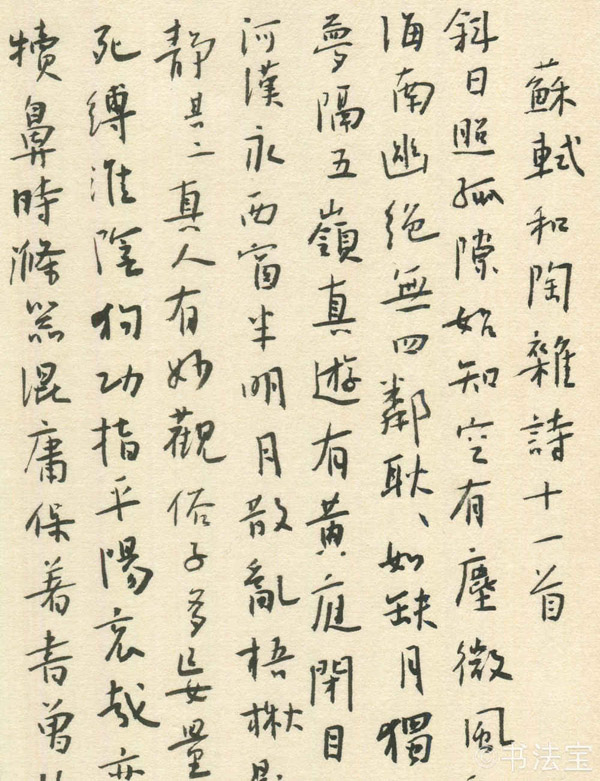 蘇軾和陶雜詩十一首
斜日照孤隙始知空有塵微風
海南幽絶無四鄰耿、如缺月獨
夢隔五嶺真遊有黃庭閉目
河漢永西窗半明月散亂梧楸
靜其二真人有妙觀俗子多妄量
死縛淮陰狗功指平陽哀哉
犢鼻時滌器混庸保著書曾
©书法宝